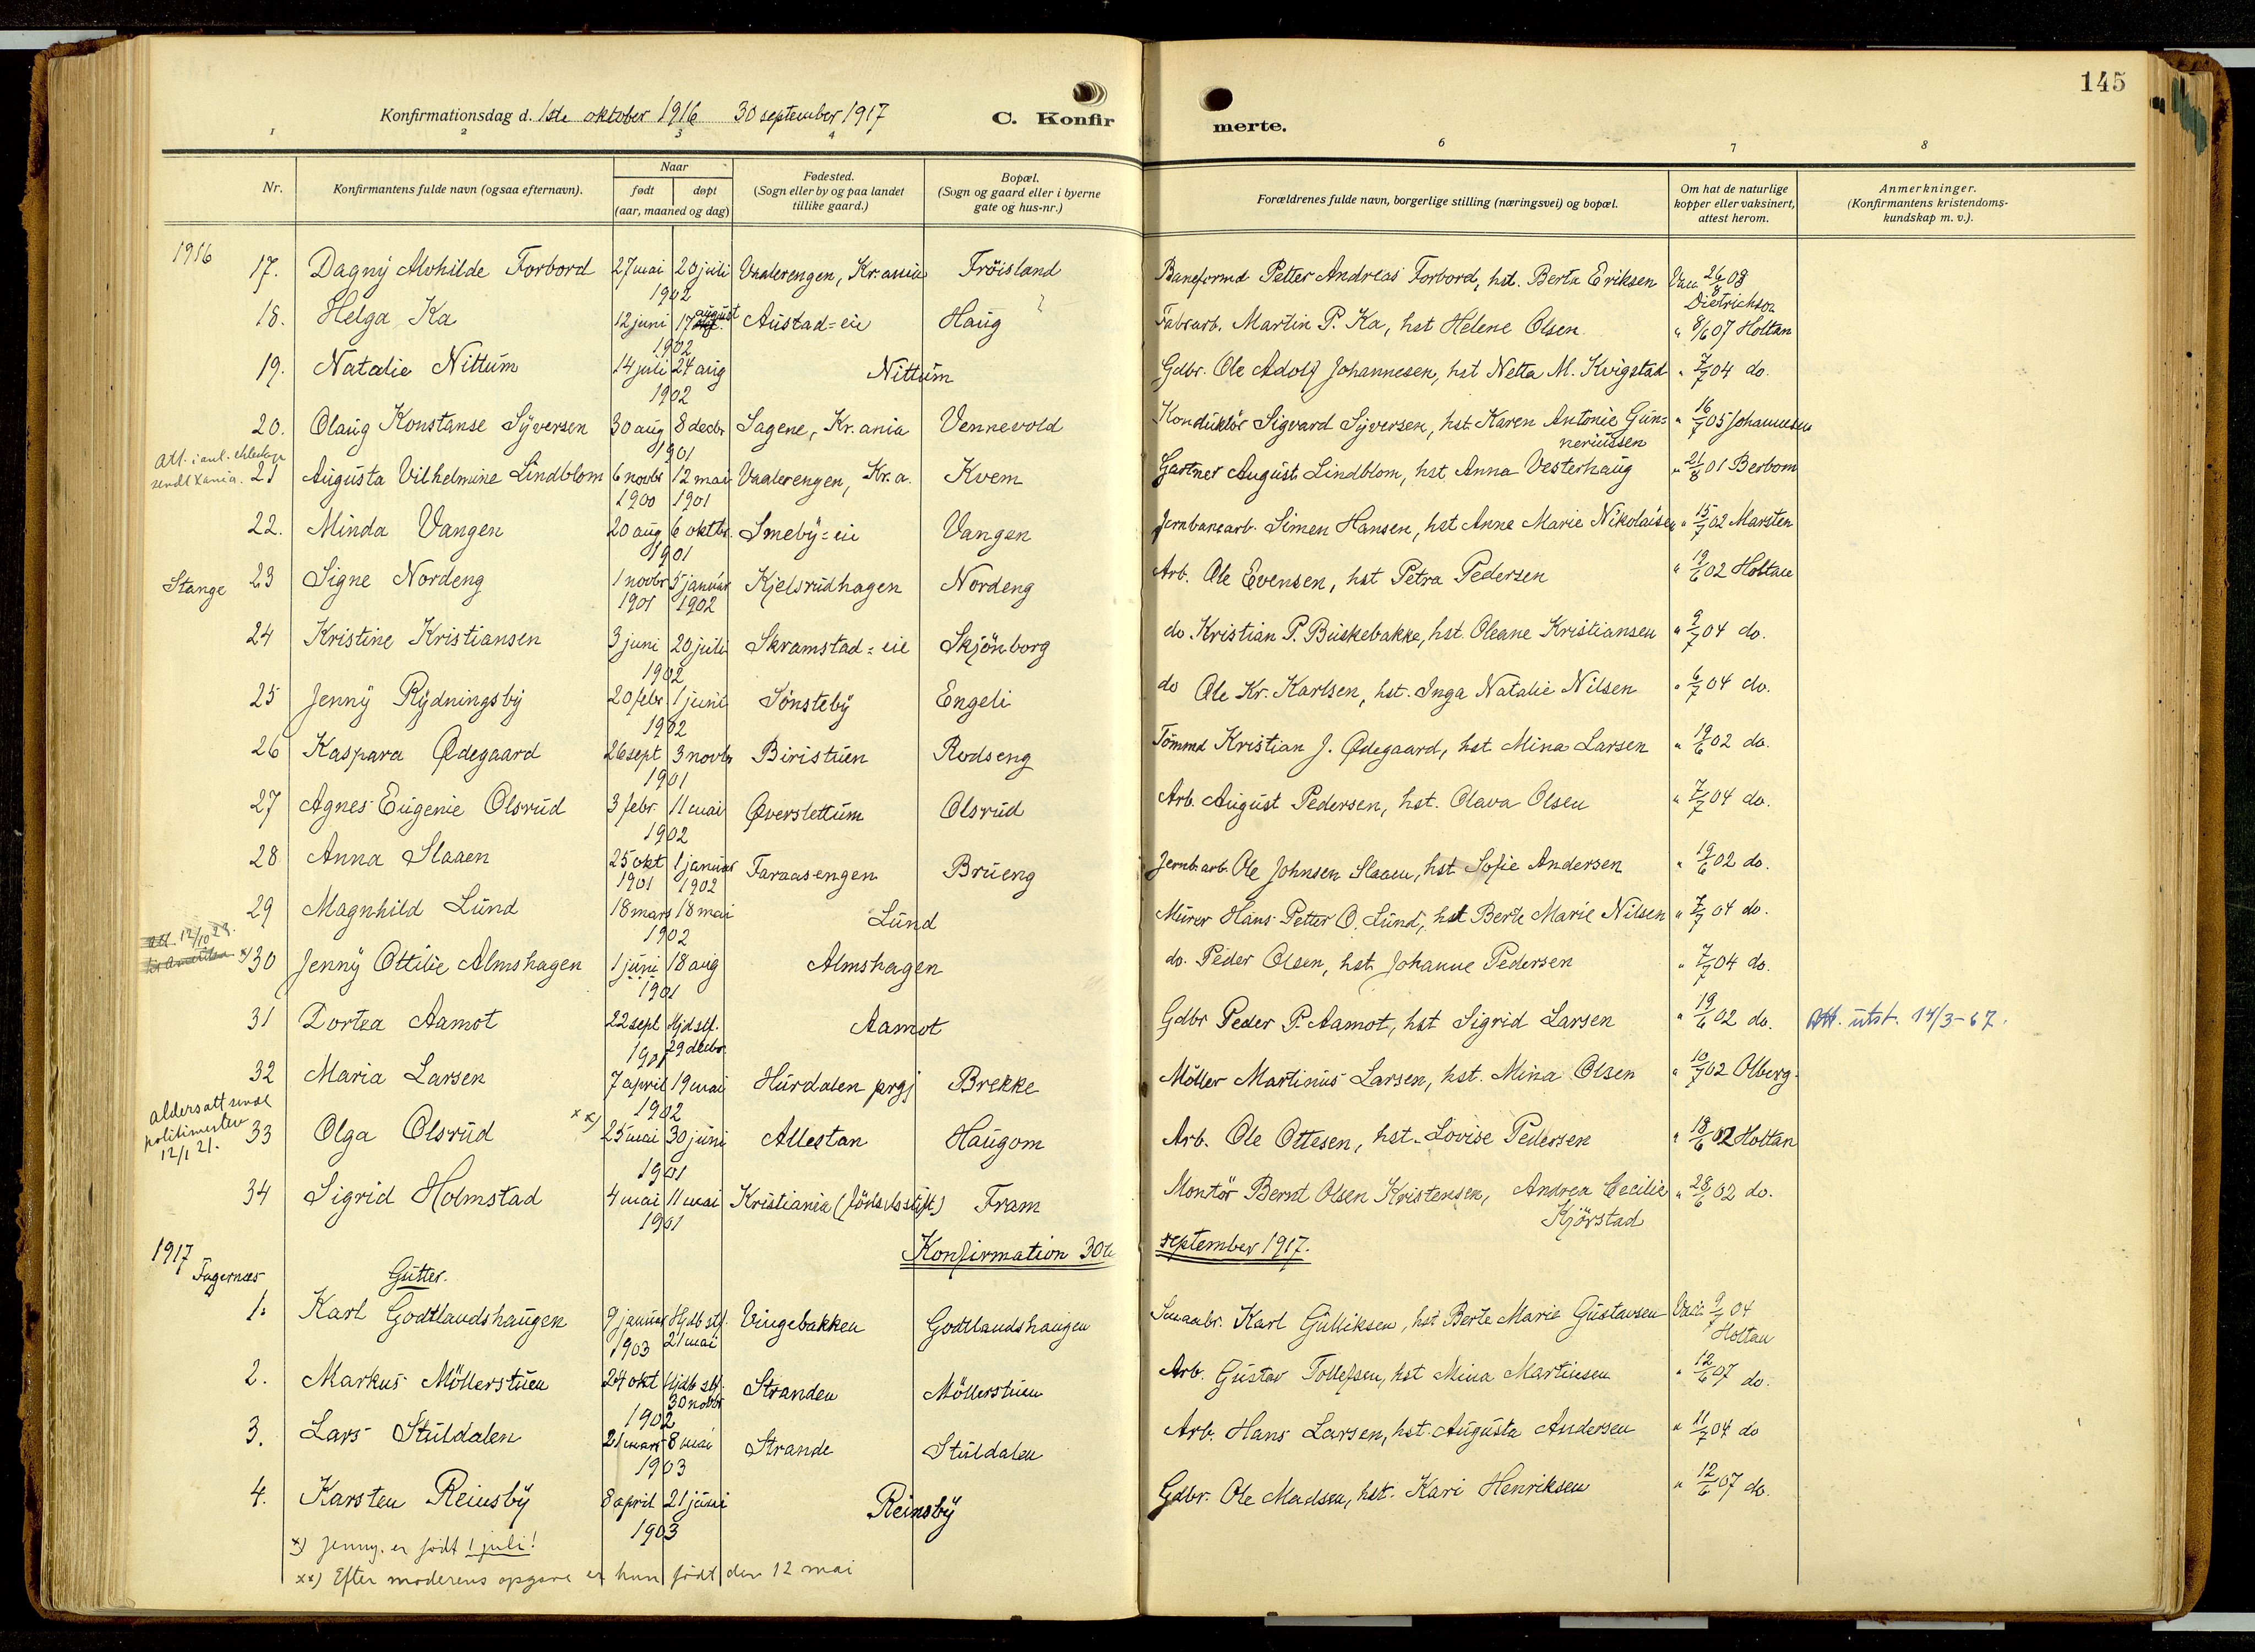 145
Konfirmationsdag d. 1ste oktober 1916 30 september 1917
C. Konfirmerte.
1 2 3 4 6 7 8
Nr.
Konfirmantens fulde navn (ogsaa efternavn).
Naar
født døpt
(aar, maaned og dag)
Fødested.
(Sogn eller by og paa landet
tillike gaard.)
Bopæl.
(Sogn og gaard eller i byerne
gate og hus-nr.)
Forældrenes fulde navn, borgerlige stilling (næringsvei) og bopæl.
Om hat de naturlige
kopper eller vaksinert,
attest herom.
Anmerkninger.
(Konfirmantens kristendoms-
kundskap m. v.).
1916
17. Dagny Alvhilde Forbord 27 mai 20 juli Vaalerengen, Kr.ania Fröisland Baneformd Petter Andreas Forbord, hst. Berta Eriksen Vac 26/8 08
1902 Dietrichson
18. Helga Ka 12 juni 17 august Austad=eie Haug Fabrarb. Martin P. Ka, hst Helene Olsen " 8/6 07 Holtan
1902
19. Natalie Nittum 14 juli 24 aug Nittum Gdbr. Ole Adolf Johannesen, hst Netta M. Kvigstad " 7/7 04 do.
1902
20. Olaug Konstanse Syversen 30 aug 8 decbr Sagene, Kr.ania Vennevold Konduktör Sigvard Syversen, hst Karen Antonie Gun= " 16/7 05 Johannesen
1901 neriussen
Att. i anl.
sendt Xania.
21 Augusta Vilhelmine Lindblom 6 novbr 12 mai Vaalerengen, Kr.a. Kvem Gartner August Lindblom, hst Anna Vesterhaug " 21/8 01 Berbom
1900 1901
22. Minda Vangen 20 aug 6 oktbr. Smeby=eie Vangen Jernbanearb. Simen Hansen, hst Anne Marie Nikolaisen " 15/7 02 Marsten
1901
Stange 23 Signe Nordeng 1 novbr 5 januar Kjelsrudhagen Nordeng Arb. Ole Evensen, hst Petra Pedersen " 19/6 02 Holtan
1901 1902
24 Kristine Kristiansen 3 juni 20 juli Skramstad=eie Skjönborg do. Kristian P. Buskebakke, hst. Oleane Kristiansen " 9/7 04 do.
1902
25 Jenny Rydningsby 20 febr. 1 juni Sönsteby Engeli do Ole Kr. Karlsen, hst. Inga Natalie Nilsen " 6/7 04 do.
1902
26 Kaspara Ødegaard 26 sept 3 novbr Biristuen Rodseng Tömmd Kristian J. Ødegaard, hst Mina Larsen " 19/6 02 do.
1901
27 Agnes Eugenie Olsrud 3 febr. 11 mai Øverslettum Olsrud Arb. August Pedersen, hst. Olava Olsen " 7/7 04 do.
1902
28 Anna Slaaen 25 okt 1 januar Faraasengen Brueng Jernb.arb. Ole Johnsen Slaaen, hst Sofie Andersen " 19/6 02 do.
1901 1902
29 Magnhild Lund 18 mars 18 mai Lund Murer Hans Petter O. Lund, hst Berte Marie Nilsen " 7/7 04 do.
1902
att. 12/10 23.
for Amerika
x) 30 Jenny Ottilie Almshagen 1 juni 18 aug Almshagen do. Peder Olsen, hst Johanne Pedersen " 7/7 04 do.
1901
31 Dortea Aamot 22 sept Hjdstf. Aamot Gdbr Peder P. Aamot, hst Sigrid Larsen " 19/6 02 do. Att. utst. 14/3-67.
1901 29 decbr
32 Maria Larsen 7 april 19 mai Hurdalen prgj Brekke Möller Martinus Larsen, hst. Mina Olsen " 10/7 02 Olberg.
1902
Aldersatt sendt
politimester
12/1 21.
33 Olga Olsrud xx) 25 mai 30 juni Allestan Haugom Arb. Ole Ottesen, hst. Lovise Pedersen " 18/6 02 Holtan
1901
34 Sigrid Holmstad 4 mai 11 mai Kristiania (födselsstift) Fram Montör Bernt Olsen Kristensen, Andrea Cecilie " 28/6 02 do.
1901 Kjörstad
1917 Konfirmation 30te september 1917.
Fagernes
Gutter.
1. Karl Godtlandshaugen 9 januar Hjdb stf. Vingebakken Godtlandshaugen Smaabr. Karl Gulliksen, hst Berte Marie Gustavsen Vac. 9/7 04
1903 21 mai Holtan
2. Markus Möllerstuen 24 okt Hjdb stf. Stranden Möllerstuen Arb. Gustav Tollefsen, hst Mina Martinsen " 12/6 07 do.
30 novbr
1902
3. Lars Stuldalen 21 mars 8 mai Strande Stuldalen Arb. Hans Larsen, hst. Augusta Andersen " 11/7 04 do
1903
4. Karsten Reinsby 8 april 21 juni Reinsby Gdbr. Ole Madsen, hst. Kari Henriksen " 12/6 07 do.
1903
x) Jenny. er födt 1 juli!
xx) Efter moderens opgave er hun födt den 12 mai